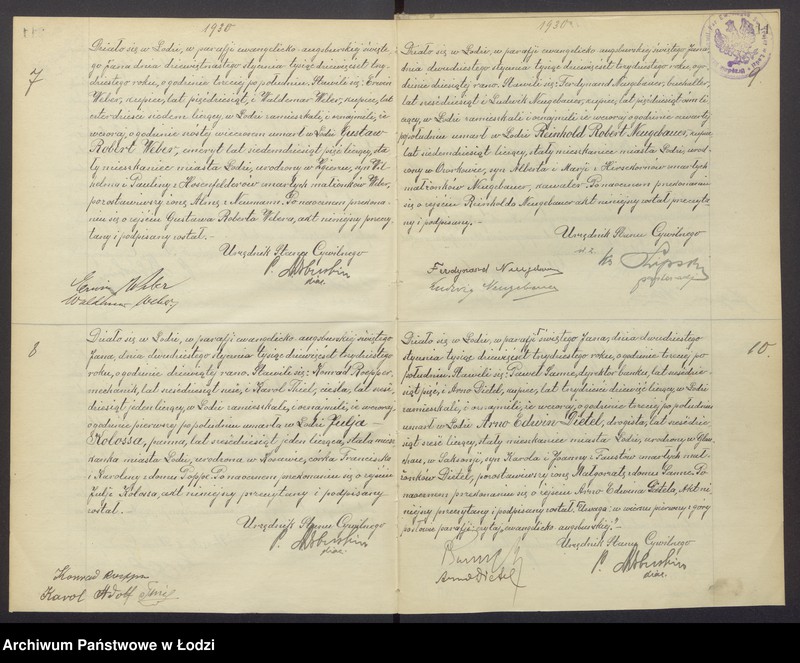 1930
7
Działo się w Łodzi, w parafji ewangelicko-augsburskiej święte-
go Jana dnia dwudziestego stycznia tysiąc dziewięćset trzy-
dziestego roku, o godzinie trzeciej po południu. Stawili się: Erwin
Weber, kupiec, lat pięćdziesiąt, i Waldemar Weber, kupiec, lat
czterdzieści siedem liczący, w Łodzi zamieszkali, i oznajmili, że
wczoraj, o godzinie szóstej wieczorem umarł w Łodzi Gustaw
Robert Weber, emeryt lat siedemdziesiąt pięć liczący, sta-
ły mieszkaniec miasta Łodzi, urodzony w Zgierzu, syn Wil-
helma i Pauliny z Hosenfelderów zmarłych małżonków Weber,
pozostawiwszy żonę Almę z Neumann. Po naocznem przekona-
niu się o zejściu Gustawa Roberta Webera, akt niniejszy przeczy-
tany i podpisany został.-
Urzędnik Stanu Cywilnego
diac.
Erwin Weber
Waldemar Weber
8
Działo się w Łodzi, w parafji ewangelicko-augsburskiej świętego
Jana, dnia dwudziestego stycznia tysiąc dziewięćset trzydziestego
roku, o godzinie dziewiątej rano. Stawili się: Konrad
mechanik, lat sześćdziesiąt, i Karol cieśla, lat sześć-
dziesiąt jeden liczący, w Łodzi zamieszkali, i oznajmili, że wczoraj,
o godzinie pierwszej po południu umarła w Łodzi Julja
Kolossa, panna, lat sześćdziesiąt jeden licząca, stała miesz-
kanka miasta Łodzi, urodzona w córka Franciszka
i Karoliny z domu Poppe. Po naocznem przekonaniu się o zejściu
Julji Kolossa, akt niniejszy przeczytany i podpisany
został.-
Urzędnik Stanu Cywilnego
diac.
Konrad
Karol Adolf
1930
11
9
Działo się w Łodzi, w parafji ewangelicko-augsburskiej świętego Jana,
dnia dwudziestego stycznia tysiąc dziewięćset trzydziestego roku, o go-
dzinie dziesiątej rano. Stawili się: Ferdynand Neugebauer, buchalter,
lat sześćdziesiąt i Ludwik Neugebauer, kupiec, lat pięćdziesiąt li-
czący, w Łodzi zamieszkali i oznajmili, że wczoraj o godzinie czwartej
po południu umarł w Łodzi Reinhold Robert Neugebauer, kupiec
lat siedemdziesiąt liczący, stały mieszkaniec miasta Łodzi, uro-
dzony w Ozorkowie, syn Alberta i Marji z zmarłych
małżonków Neugebauer, kawaler. Po naocznem przekonaniu
się o zejściu Reinholda Neugebauer akt niniejszy został przeczyta-
ny i podpisany.-
Urzędnik Stanu Cywilnego
Ferdynand Neugebauer
Ludwig Neugebauer
10.
Działo się w Łodzi, w parafji świętego Jana, dnia dwudziestego
stycznia tysiąc dziewięćset trzydziestego roku, o godzinie trzeciej po
południu. Stawili się: Paweł Sanne, dyrektor banku, lat sześćdzie-
siąt pięć, i Arno Dietel, kupiec, lat trzydzieści dziewięć liczący, w Łodzi
zamieszkali, i oznajmili, że wczoraj o godzinie trzeciej po południu
umarł w Łodzi Arno Edwin Dietel, drogista, lat sześćdzie-
siąt sześć liczący, stały mieszkaniec miasta Łodzi, urodzony w Glau-
chau, w Saksonji, syn Karola i Joanny z zmarłych mał-
żonków Dietel, pozostawiwszy żonę Małgorzatę z domu Sanne. Po
naocznem przekonaniu się o zejściu Arno Edwina Dietela, akt ni-
niejszy przeczytany i podpisany został. Uwaga: w wierszu pierwszym z góry
po słowie parafji-czytaj "ewangelicko-augsburskiej".-
Urzędnik Stanu Cywilnego
diac.
Arno Dietel
Archiwum Państwowe w Łodzi